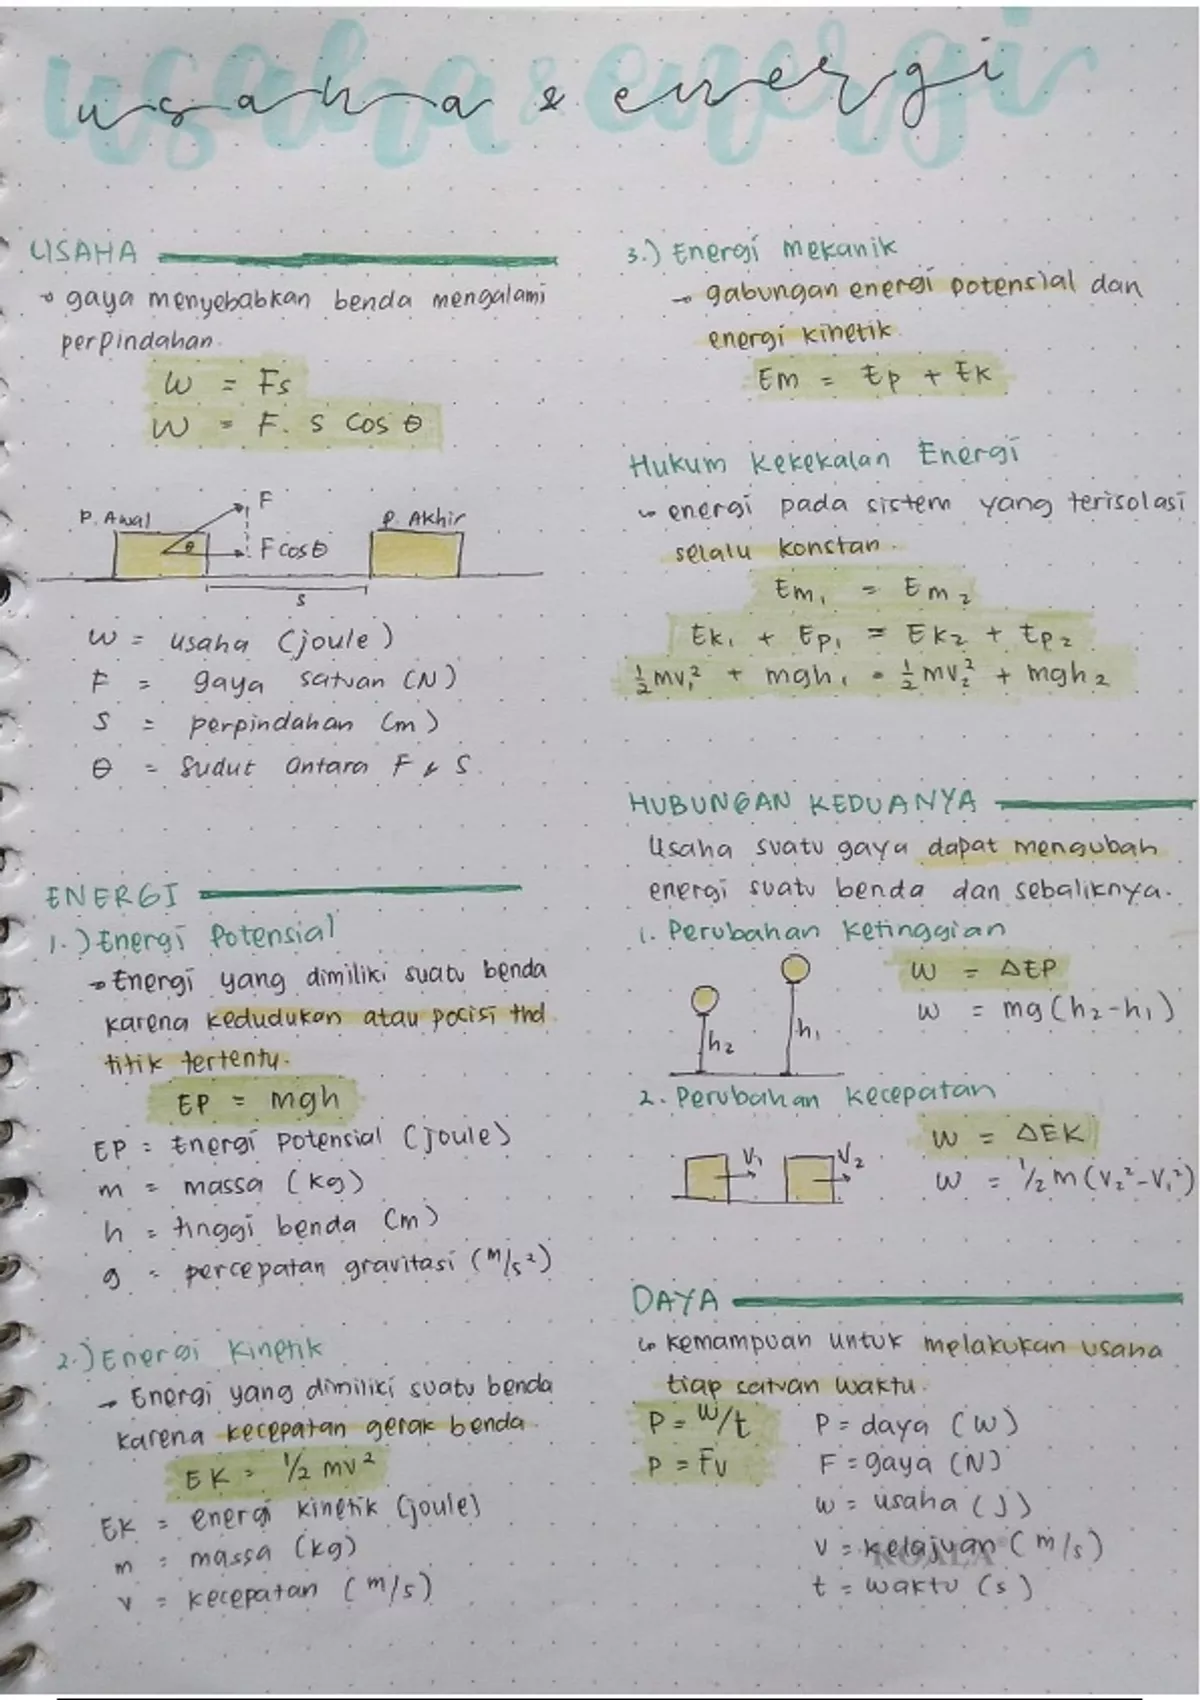 usaha & energi
USAHA
gaya menyebabkan benda mengalami
perpindahan.
W = Fs
W = F. s cos θ
P. Awal
F
F cos θ
θ
P. Akhir
s
W = usaha (joule)
F = gaya satuan (N)
S = perpindahan (m)
θ = sudut antara F & S.
ENERGI
1.) Energi Potensial
→ Energi yang dimiliki suatu benda
karena kedudukan atau posisi thd
titik tertentu.
EP = mgh
EP = Energi potensial (joule)
m = massa (kg)
h = tinggi benda (m)
g = percepatan gravitasi (m/s²)
2.) Energi Kinetik
→ Energi yang dimiliki suatu benda
karena kecepatan gerak benda.
EK = ½ mv²
EK = energi kinetik (joule)
m = massa (kg)
v = kecepatan (m/s)
3.) Energi Mekanik
→ gabungan energi potensial dan
energi kinetik.
Em = Ep + Ek
Hukum Kekekalan Energi
↳ energi pada sistem yang terisolasi
selalu konstan.
Em₁ = Em₂
Ek₁ + Ep₁ = Ek₂ + Ep₂
½mv₁² + mgh₁ = ½mv₂² + mgh₂
HUBUNGAN KEDUANYA
Usaha suatu gaya dapat mengubah
energi suatu benda dan sebaliknya.
1. Perubahan Ketinggian
h₂
h₁
W = ΔEP
W = mg(h₂-h₁)
2. Perubahan Kecepatan
V₁
V₂
W = ΔEK
W = ½ m(V₂²-V₁²)
DAYA
↳ Kemampuan untuk melakukan usaha
tiap satuan waktu.
P = W/t
P = Fv
P = daya (W)
F = gaya (N)
W = usaha (J)
V = kelajuan (m/s)
t = waktu (s)
KOALA